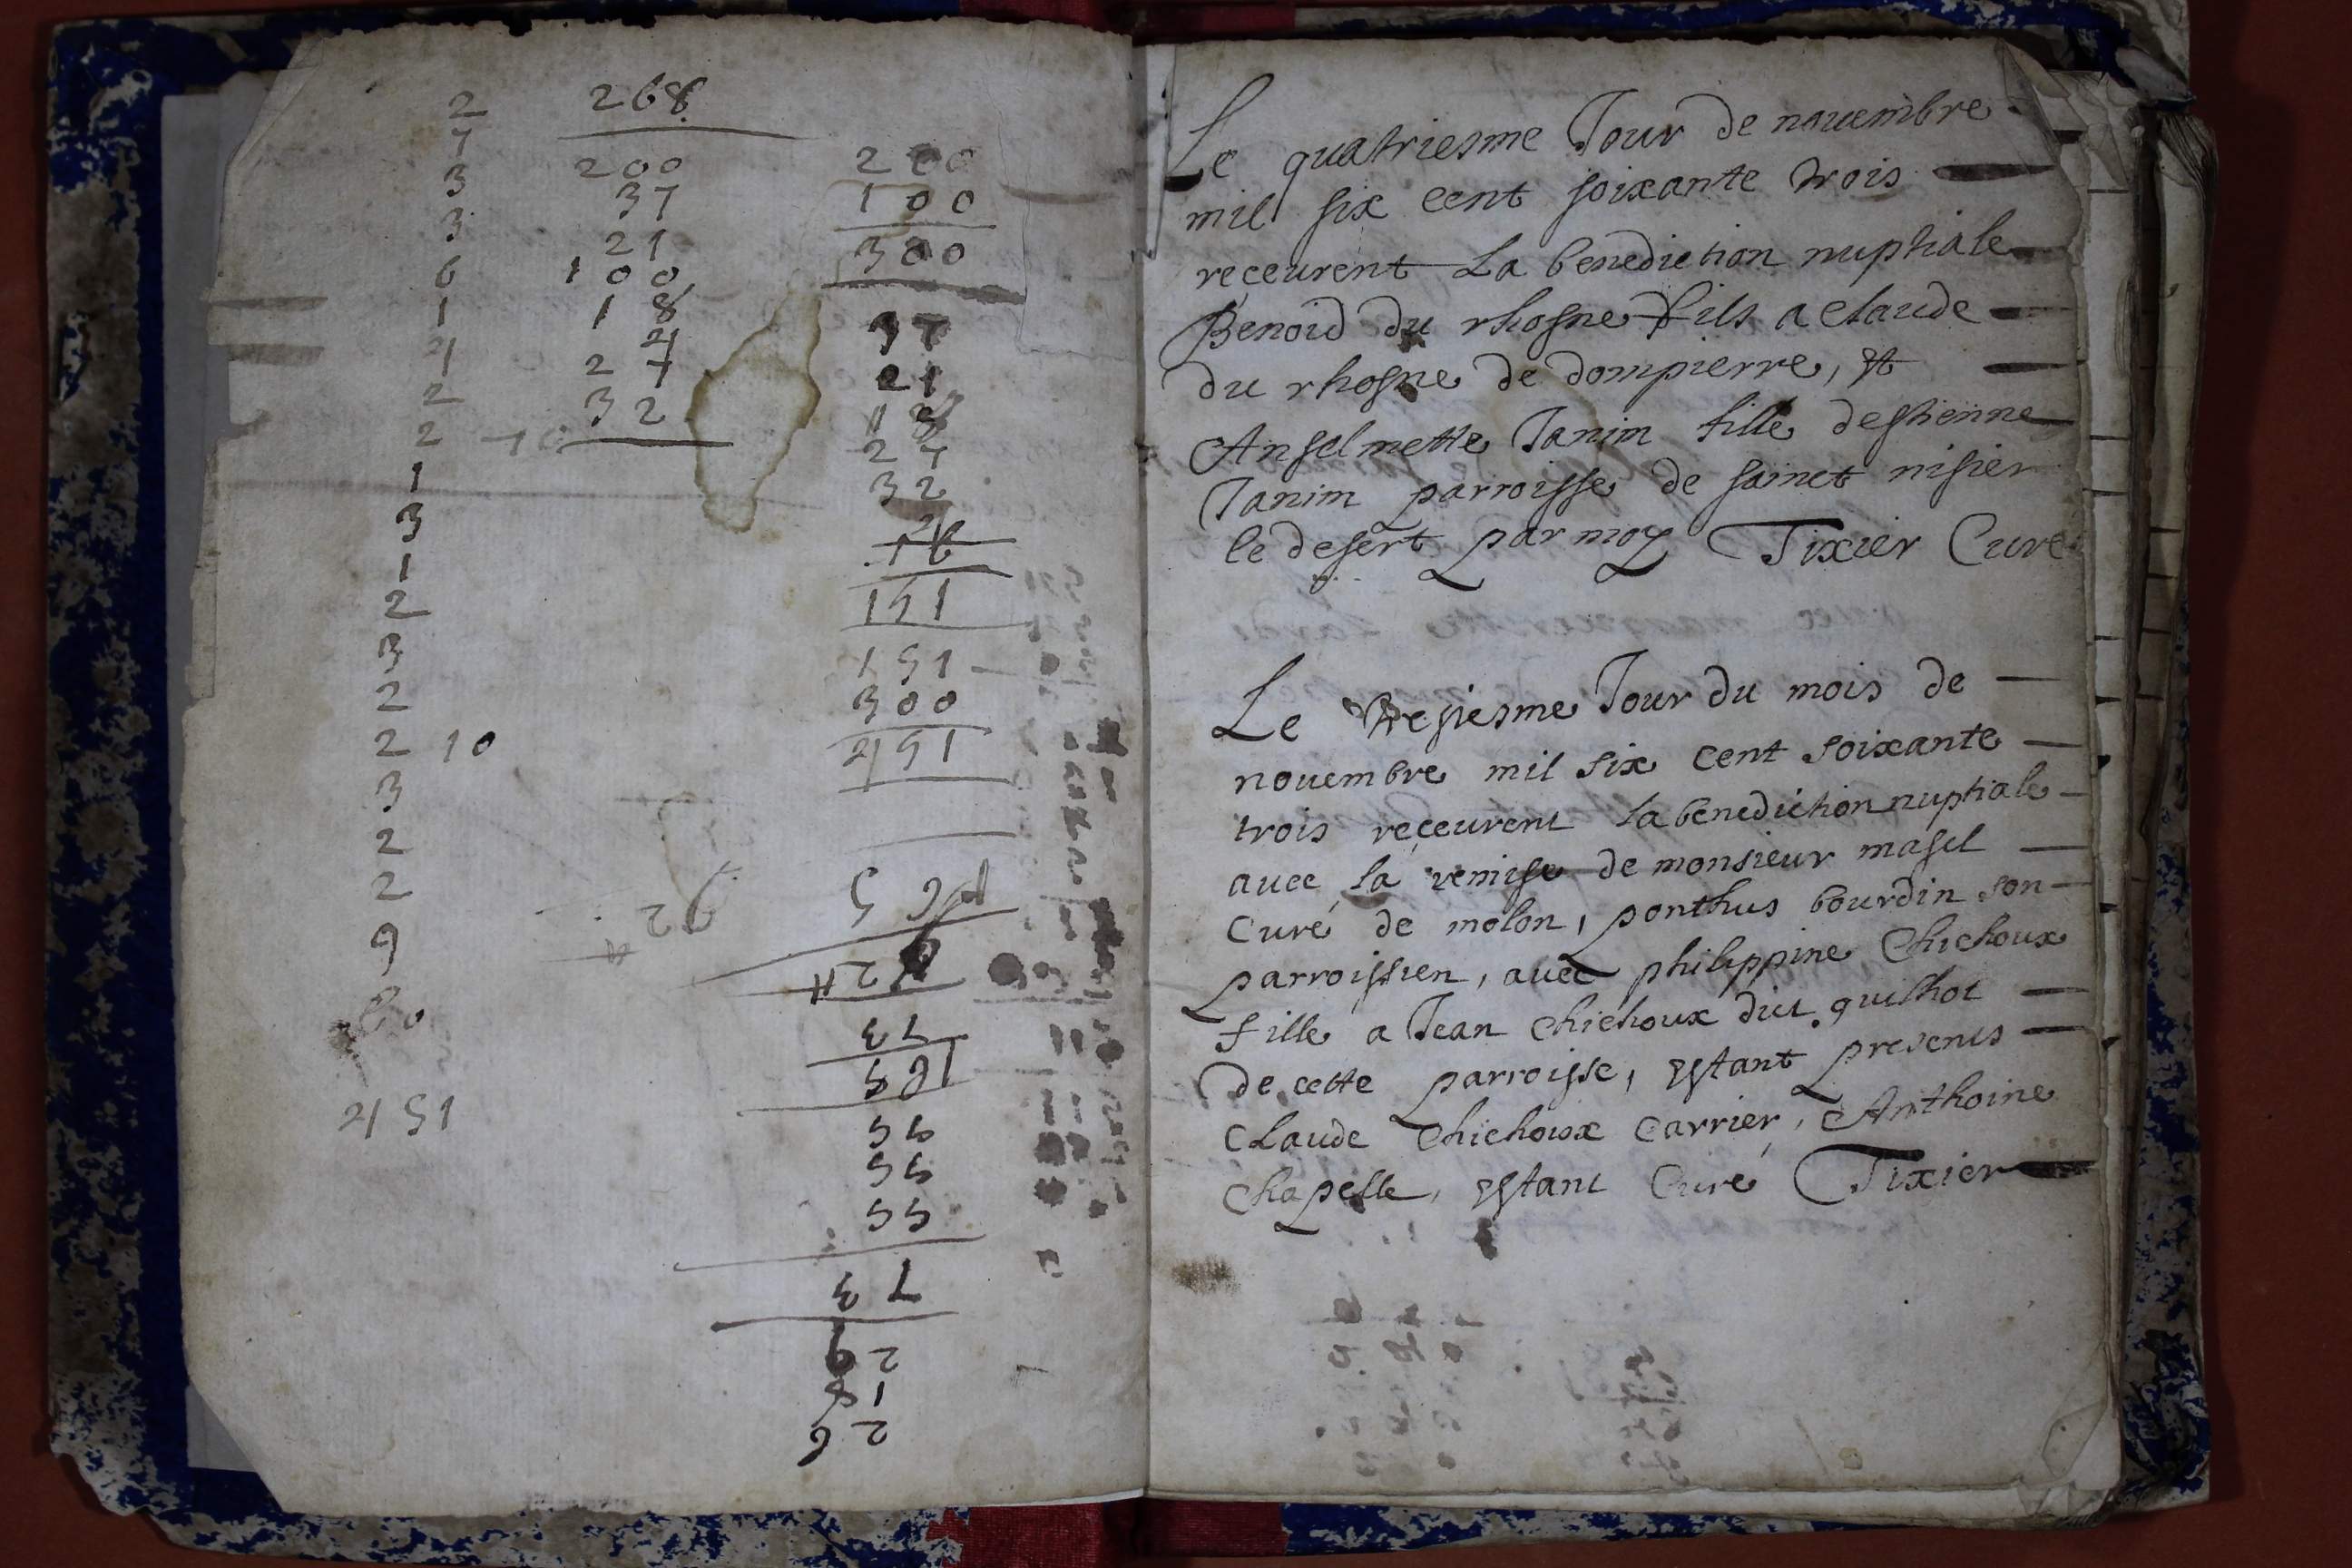 2
7
3
3
6
1
4
2
2
1
3
1
2
3
2
2 10
3
2
2
9
451
268
200
37
21
100
18
4
27
32
200
100
300
37
21
18
27
32
16
151
151
300
451
73
55
55
55
73
29
18
26
Le quatriesme Jour de nouembre
mil six cent soixante trois
receurent La benediction nuptiale
Benoid du rhosne fils a claude
du rhosne de dompierre, et
Anselmette Janim fille destienne
Janim parroisse de sainct nisier
le desert par moy Tixier Curé
Le tresiesme Jour du mois de
nouembre mil six cent soixante
trois receurent la benediction nuptiale
auec la remise de monsieur masel
Curé de molon, ponthus bourdin son
parroissien, auec philippine Chichoux
fille a Jean Chichoux dict quilhot
de cette parroisse, estant presents
Claude Chichoux Carrier, Anthoine
Chapelle, estant Curé Tixier